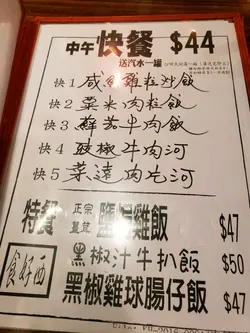 中午 快餐 $44
送汽水一罐
快1 咸魚雞粒炒飯
快2 粟米肉粒飯
快3 鮮茄牛肉飯
快4 豉椒牛肉河
快5 菜遠肉片河
特餐 正宗 鹽焗雞飯 $47
黑椒汁牛扒飯 $50
黑椒雞球腸仔飯 $47
食好西